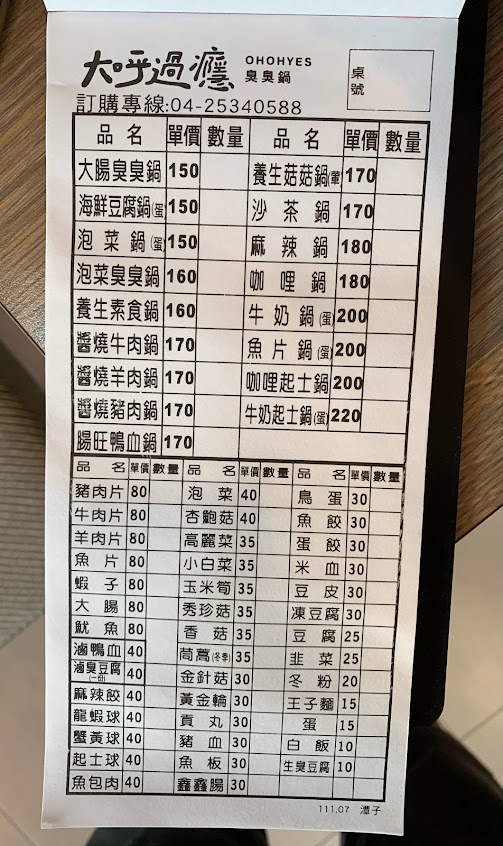 大呼過癮 OHOHYES 臭臭鍋
桌號
訂購專線:04-25340588
品名 單價 數量 品名 單價 數量
大腸臭臭鍋 150 養生菇菇鍋(葷) 170
海鮮豆腐鍋(蛋) 150 沙茶鍋 170
泡菜鍋(蛋) 150 麻辣鍋 180
泡菜臭臭鍋 160 咖哩鍋 180
養生素食鍋 160 牛奶鍋(蛋) 200
醬燒牛肉鍋 170 魚片鍋(蛋) 200
醬燒羊肉鍋 170 咖哩起士鍋 200
醬燒豬肉鍋 170 牛奶起士鍋(蛋) 220
腸旺鴨血鍋 170
品名 單價 數量 品名 單價 數量 品名 單價 數量
豬肉片 80 泡菜 40 鳥蛋 30
牛肉片 80 杏鮑菇 40 魚餃 30
羊肉片 80 高麗菜 35 蛋餃 30
魚片 80 小白菜 35 米血 30
蝦子 80 玉米筍 35 豆皮 30
大腸 80 秀珍菇 35 凍豆腐 30
魷魚 80 香菇 35 豆腐 25
滷鴨血 40 茼萵(冬季) 35 韭菜 25
滷臭豆腐(一份) 40 金針菇 30 冬粉 20
麻辣餃 40 黃金輪 30 王子麵 15
龍蝦球 40 貢丸 30 蛋 15
蟹黃球 40 豬血 30 白飯 10
起士球 40 魚板 30 生臭豆腐 10
魚包肉 40 鑫鑫腸 30
111.07 潭子